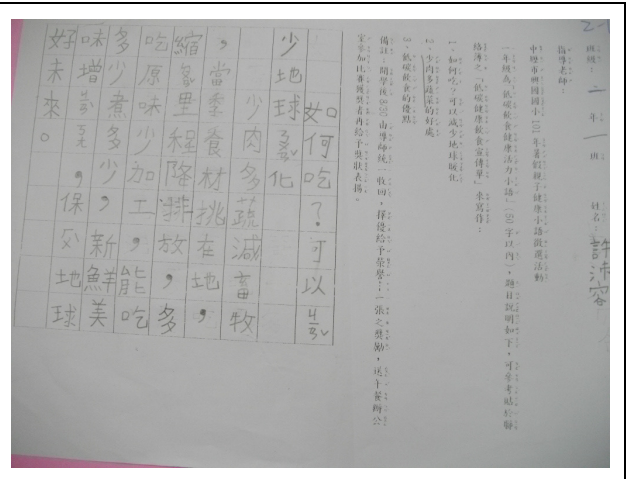 2-1
班級：二年一班 姓名：許沛容
指導老師：
中壢市興國國小101年暑假親子健康小語徵選活動
一年級為「低碳飲食健康活力小語」(50字以內)，題目說明如下，可參考貼於聯
絡簿之「低碳健康飲食宣傳單」來寫作：
1、如何吃？可以減少地球暖化
2、少肉多蔬菜的好處
3、低碳飲食的優點
備註：開學後8/30由導師統一收回，擇優給予榮譽卡一張之獎勵，送午餐辦公
家參加比賽獲獎者再給予獎狀表揚。
如何吃？可以ㄐㄧㄢˇ
少地球ㄋㄨㄢˇ化
少肉多蔬減畜牧
，當季食材挑在地，
縮里程降排放，多
吃原味少加工，能吃
多少煮多少，新鮮美
味增，保地球
好未來。